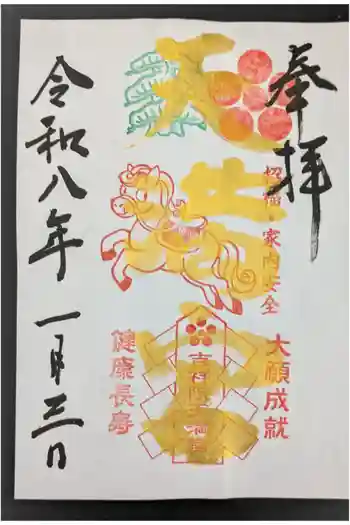 奉拝
招福・家内安全
大願成就
健康長寿
令和八年
一月三日